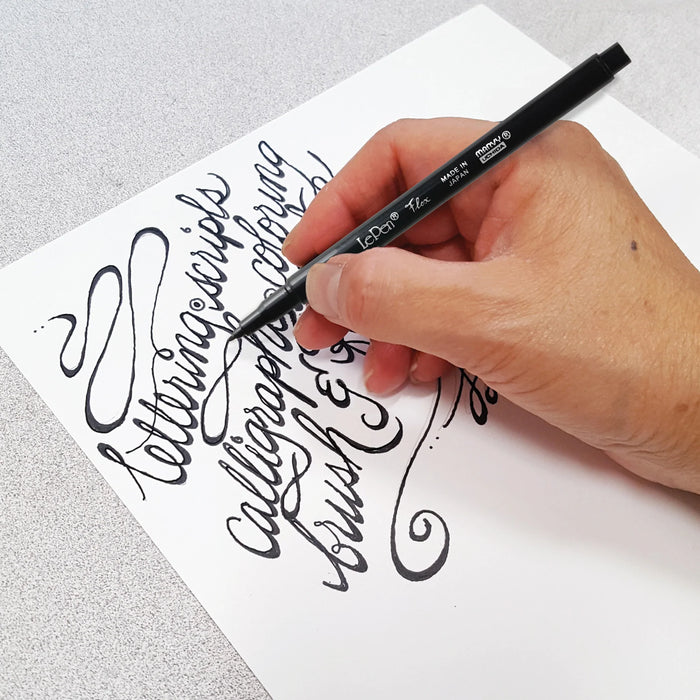 lettering scripts
Calligraphy coloring
brush &
LePen® Flex
MADE IN
JAPAN
MARVY®
UCHIDA